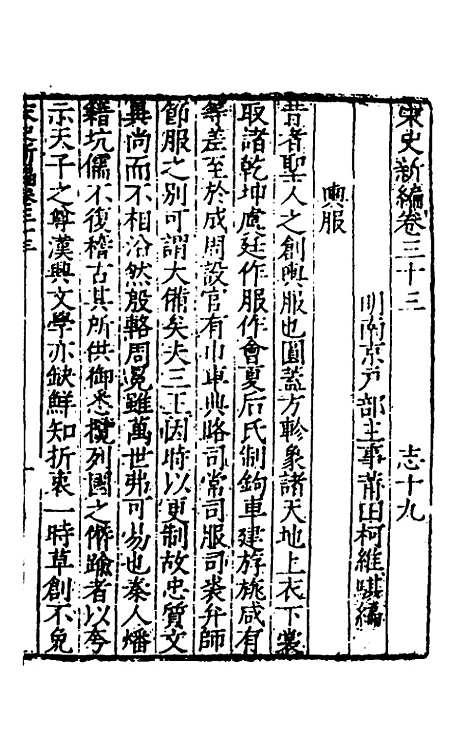 宋史新編卷三十三　志十九
明南京戶部主事莆田柯維騏編
輿服
昔者聖人之創輿服也圓蓋方軫象諸天地上衣下裳
取諸乾坤虞廷作服作會夏后氏制鉤車建旂旐咸有
等差至於成周設官有巾車典路司常司服司裘弁師
節服之別可謂大備矣夫三王因時以更制故忠質文
異尚而不相沿然殷輅周冕雖萬世弗可易也秦人燔
籍坑儒不復稽古其所供御悉攬列國之僭踰者以夸
示天子之尊漢興文學亦缺鮮知折衷一時草創不免
宋史新編卷三十三　一